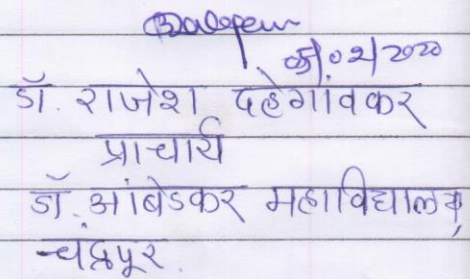 डॉ. राजेश दहेगांवकर
प्राचार्य
डॉ. आंबेडकर महाविद्यालय,
चंद्रपूर.